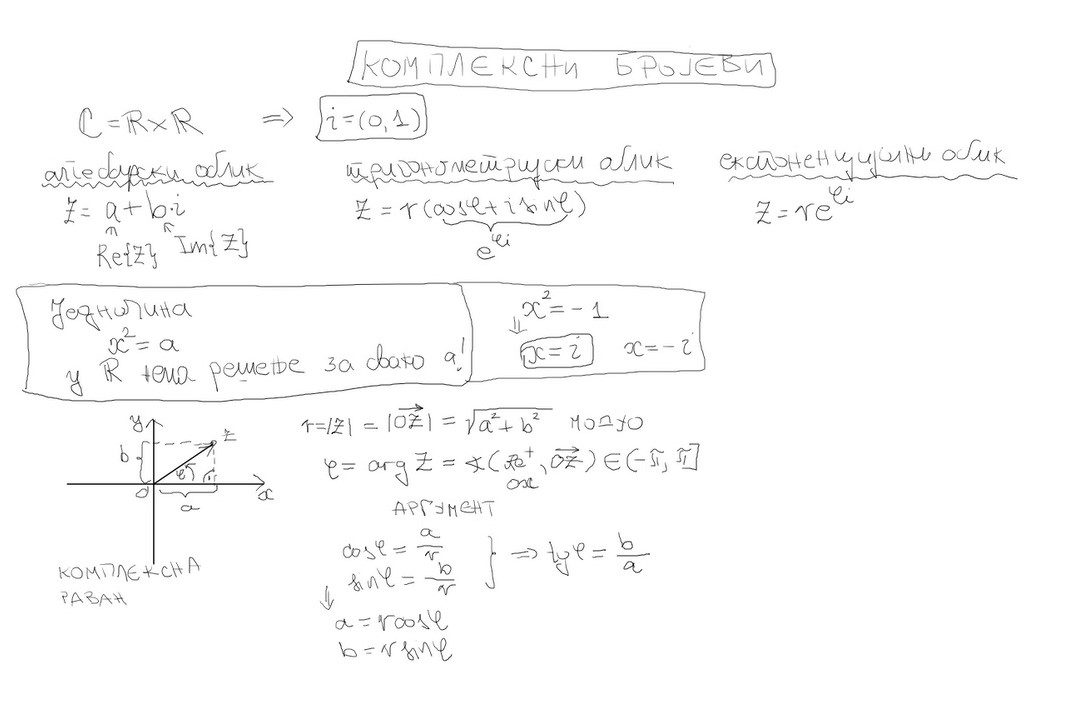 КОМПЛЕКСНИ БРОЈЕВИ
ℂ = ℝ×ℝ ⇒ i=(0,1)
алгебарски облик
z = a + b·i
Re{z} Im{z}
тригонометријски облик
z = r(cosφ + i sinφ)
e^{φi}
експоненцијални облик
z = re^{φi}
Једначина
x² = a
у ℝ нема решење за свако a!
x² = -1
⇓
x = i x = -i
y
b
z
φ
0
a
x
КОМПЛЕКСНА
РАВАН
r = |z| = |\overrightarrow{0z}| = √(a² + b²) МОДУО
φ = arg z = ∢( , \overrightarrow{0z}) ∈ (-π, π]
ox
АРГУМЕНТ
cosφ = a/r
sinφ = b/r } ⇒ tgφ = b/a
⇓
a = r cosφ
b = r sinφ